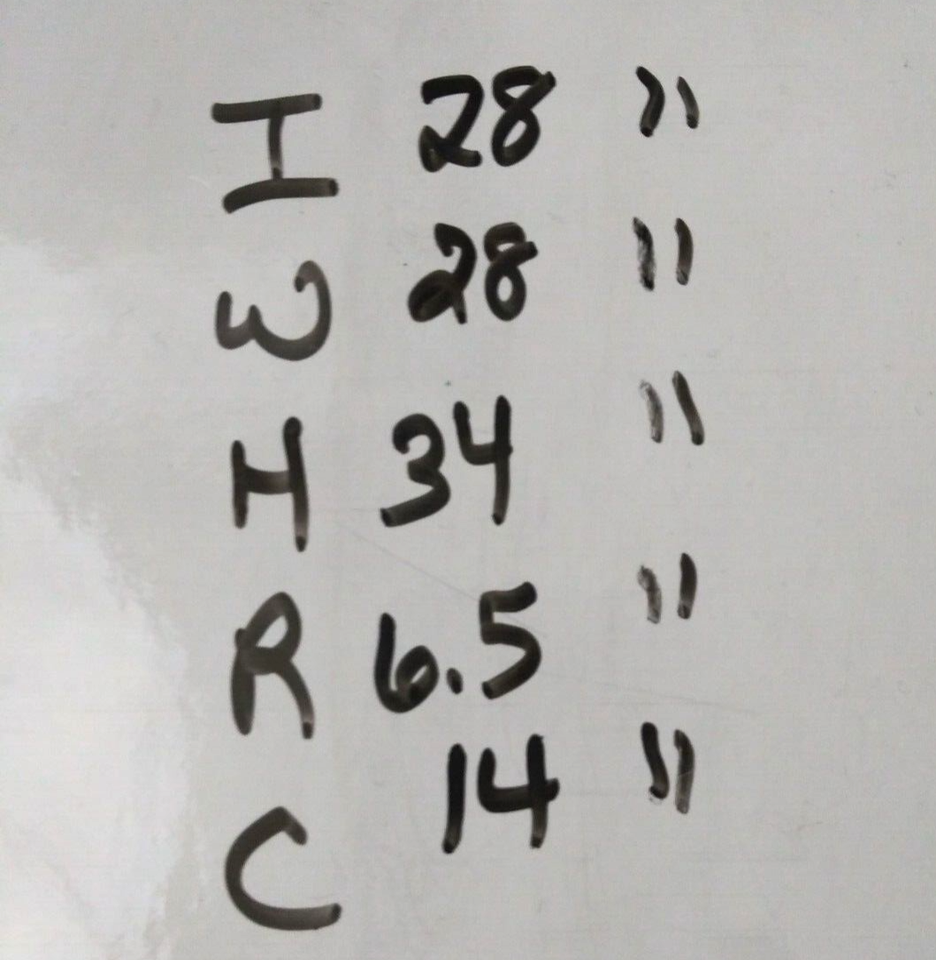 I 28 "
W 28 "
H 34 "
R 6.5 "
C 14 "